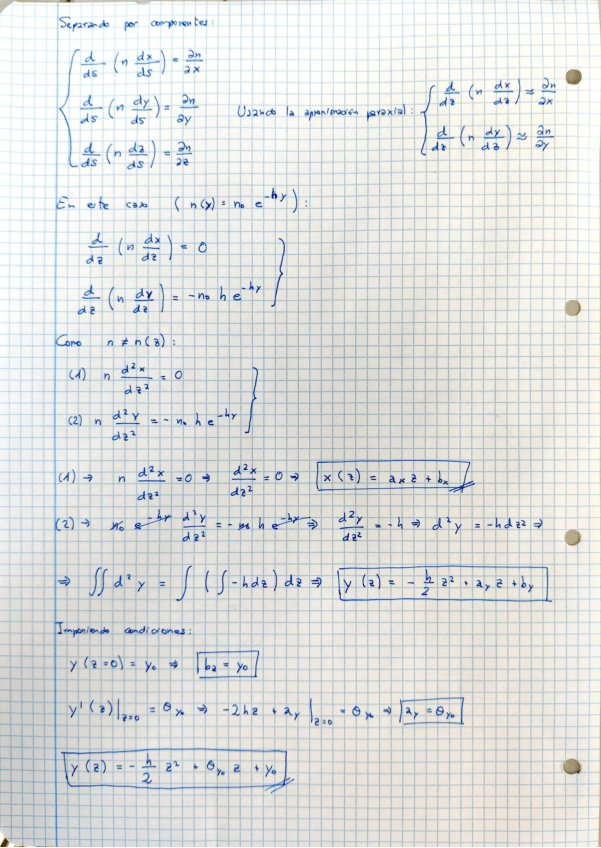 Separando por componentes:
{ d/ds (n dx/ds) = ∂n/∂x
d/ds (n dy/ds) = ∂n/∂y
d/ds (n dz/ds) = ∂n/∂z
Usando la aproximación paraxial: { d/dz (n dx/dz) ≈ ∂n/∂x
d/dz (n dy/dz) ≈ ∂n/∂y
En este caso ( n(y) = n₀ e^{-hy} ) :
d/dz (n dx/dz) = 0
d/dz (n dy/dz) = -n₀ h e^{-hy} }
Como n ≠ n(z) :
(1) n d²x/dz² = 0
(2) n d²y/dz² = - n₀ h e^{-hy} }
(1) → n d²x/dz² = 0 ⇒ d²x/dz² = 0 ⇒ x(z) = aₓ z + bₓ
(2) → n₀ e^{-hy} d²y/dz² = - n₀ h e^{-hy} ⇒ d²y/dz² = -h ⇒ d²y = -h dz² ⇒
⇒ ∬ d²y = ∫ ( ∫ -h dz ) dz ⇒ y(z) = - h/2 z² + a_y z + b_y
Imponiendo condiciones:
y(z=0) = y₀ ⇒ b₂ = y₀
y'(z)|_{z=0} = θ_{y₀} ⇒ -2hz + a_y |_{z=0} = θ_{y₀} ⇒ a_y = θ_{y₀}
y(z) = - h/2 z² + θ_{y₀} z + y₀